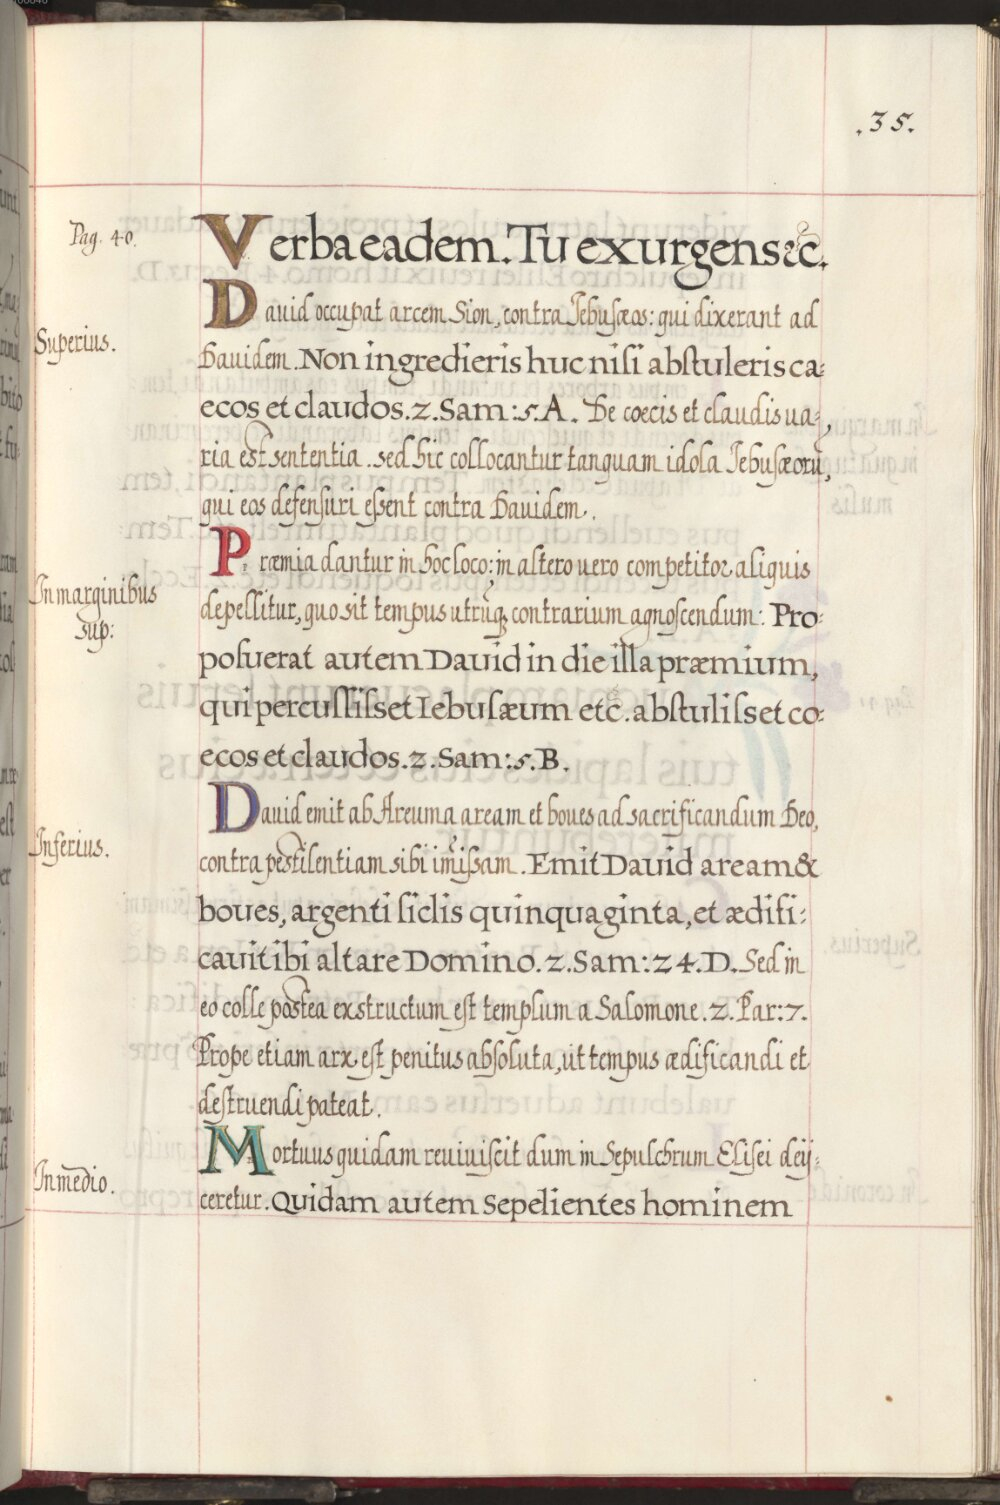 .35.
Pag. 40.
Verba eadem. Tu exurgens &c.
Superius.
Dauid occupat arcem Sion, contra Jebusæos: qui dixerant ad
Dauidem. Non ingredieris huc nisi abstuleris ca=
ecos et claudos. 2. Sam: 5. A. De cœcis et claudis ua=
ria est sententia. sed hic collocantur tanquam idola Jebusæorū,
qui eos defensuri essent contra Dauidem.
In marginibus
sup:
Præmia dantur in hoc loco: in altero uero competitor aliquis
depellitur, quo sit tempus utrūq; contrarium agnoscendum: Pro=
posuerat autem Dauid in die illa præmium,
qui percussisset Iebusæum etc̃. abstulisset co=
ecos et claudos. 2. Sam: 5. B.
Inferius.
Dauid emit ab Areuma aream et boues ad sacrificandum Deo,
contra pestilentiam sibi im̃issam. Emit Dauid aream &
boues, argenti siclis quinquaginta, et ædifi=
cauit ibi altare Domino. 2. Sam: 24. D. Sed in
eo colle postea exstructum est templum a Salomone. 2. Par: 7.
Prope etiam arx est penitus absoluta, ut tempus ædificandi et
destruendi pateat.
In medio.
Mortuus quidam reuiuiscit dum in Sepulchrum Elisei deij=
ceretur. Quidam autem sepelientes hominem